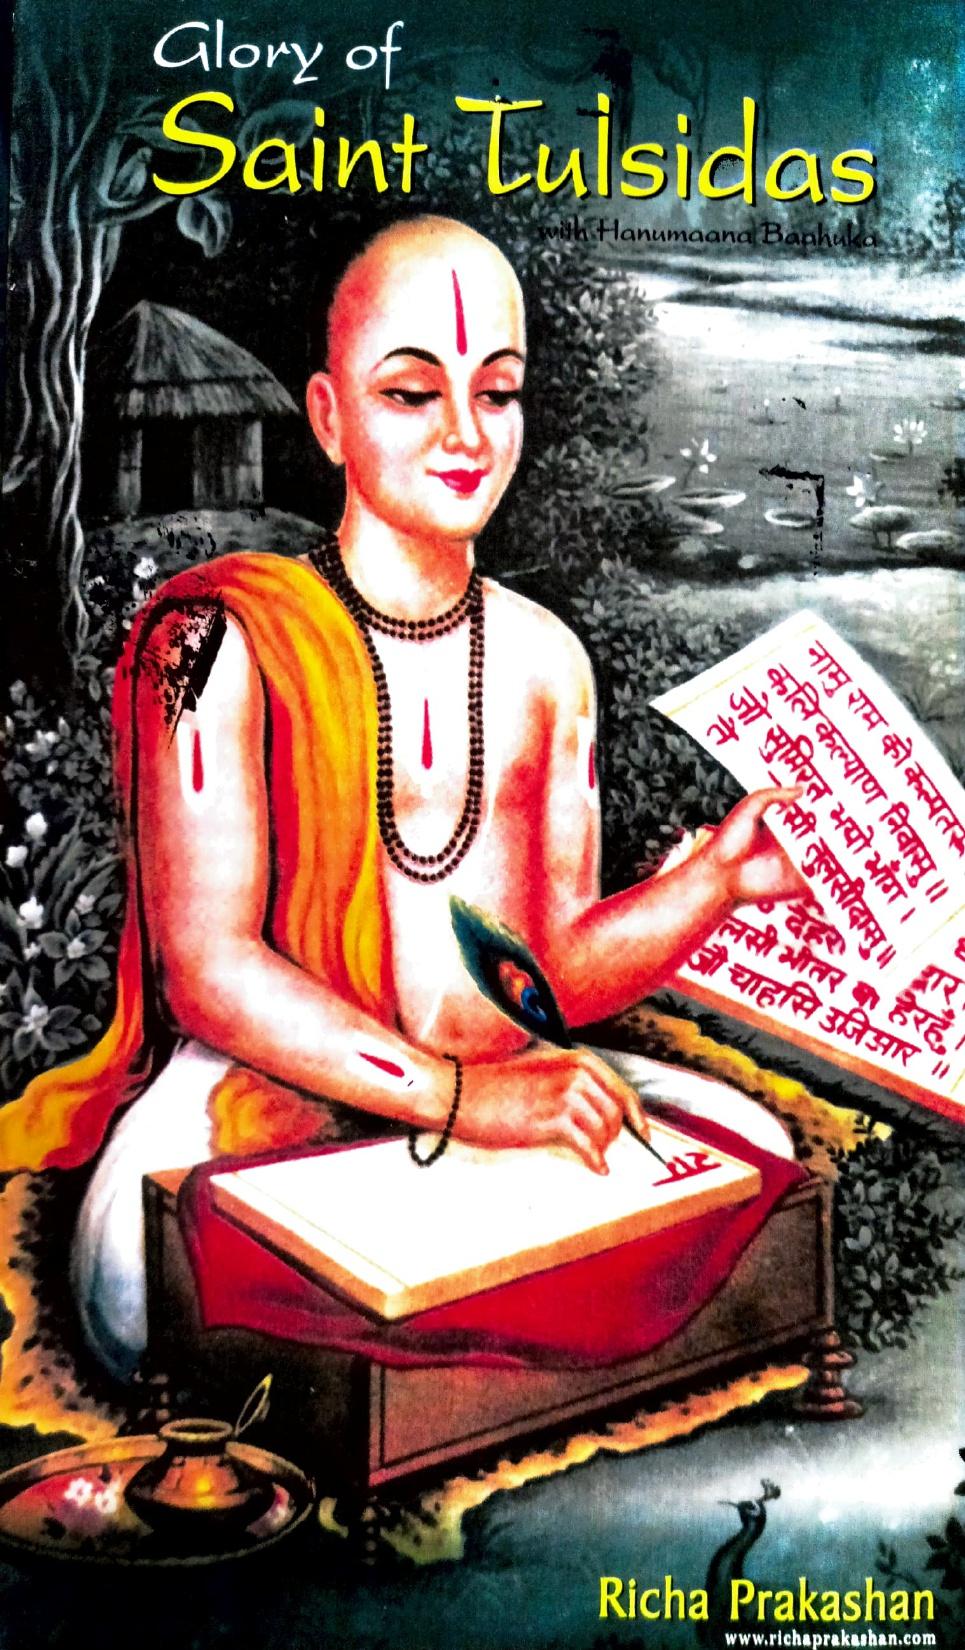 Glory of
Saint Tulsidas
with Hanumaana Baahuka
नामु राम को कलपतरु
कलि कल्याण निवासु ॥
जो सुमिरत भयो भाँग
तुलसीदासु ॥
देहर
भीतर
हेरहुँ,
जौ चाहसि उजिआर ॥
Richa Prakashan
www.richaprakashan.com